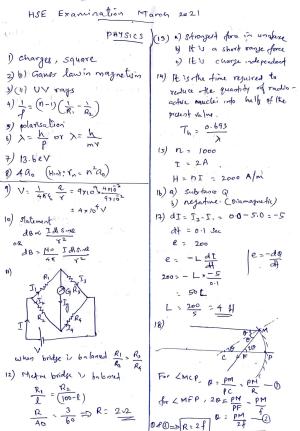 HSE Examination March 2021
PHYSICS
1) charges, square
2) b) Gauss law in magnetism
3) (c) UV rays
4) 1/f = (n-1)(1/R₁ - 1/R₂)
5) polarisation
6) λ = h/p or λ = h/mv
7) 13.6eV
8) 4a₀ (Hint: rₙ = n²a₀)
10) Statement
dB ∝ I dl sinθ / r²
OR
dB = μ₀/4π I dl sinθ / r²
11)
R₁
R₃
R₂
R₄
G
I
V
when bridge is balanced R₁/R₂ = R₃/R₄
12) Metre bridge is balanced
R/l = R₂/(100-l)
R/40 = 3/60 ⇒ R = 2Ω
13) a) Strongest force in universe
b) It is a short range force
c) It is charge independent
14) It is the time required to
reduce the quantity of radio-
active nuclei into half of the
present value.
T½ = 0.693/λ
15) n = 1000
I = 2A
H = nI = 2000 A/m
16) a) Substance Q
b) negative (Diamagnetic)
17) dI = I₂-I₁ = 0.0-5.0 = -5
dt = 0.1 sec
e = 200
e = -L dI/dt
e = -dφ/dt
200 = -L × -5/0.1
= 50L
L = 200/50 = 4 H
18)
M
C
F
P
For ∠MCP, θ = PM/PC = PM/R —①
for ∠MFP, 2θ = PM/PF = PM/f
θ = PM/2f —②
①&② ⇒ R = 2f